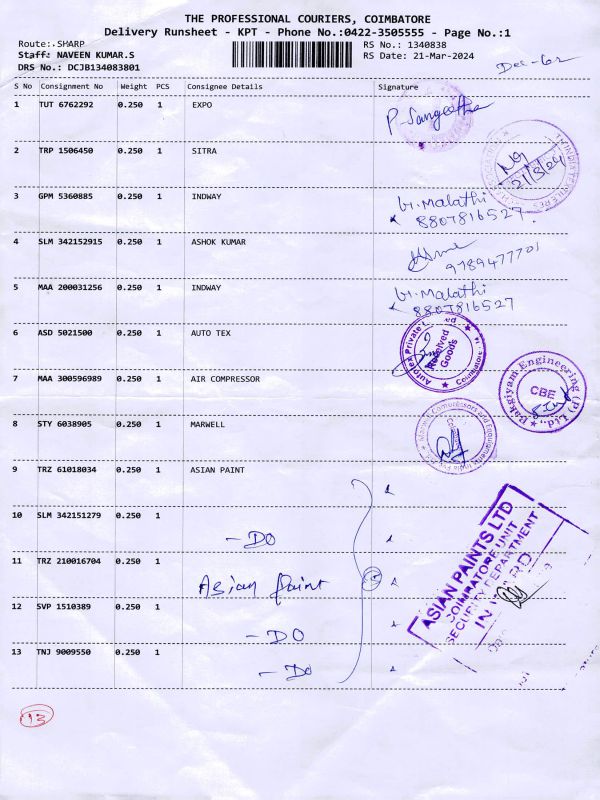 THE PROFESSIONAL COURIERS, COIMBATORE
Delivery Runsheet - KPT - Phone No.:0422-3505555 - Page No.:1
Route: SHARP
Staff: NAVEEN KUMAR.S
DRS No.: DCJB134083801
RS No.: 1340838
RS Date: 21-Mar-2024
S No Consignment No Weight PCS Consignee Details Signature
1 TUT 6762292 0.250 1 EXPO P. Sangeetha
2 TRP 1506450 0.250 1 SITRA
21/3/24
3 GPM 5360885 0.250 1 INDWAY Malathi
8807816527
4 SLM 342152915 0.250 1 ASHOK KUMAR
9789477701
5 MAA 200031256 0.250 1 INDWAY Malathi
8807816527
6 ASD 5021500 0.250 1 AUTO TEX
Autotex Private Coimbatore
Received
Goods
7 MAA 300596989 0.250 1 AIR COMPRESSOR
Bakgiyam Engineering (P) Ltd.,
CBE
8 STY 6038905 0.250 1 MARWELL
9 TRZ 61018034 0.250 1 ASIAN PAINT
10 SLM 342151279 0.250 1 - DO
11 TRZ 210016704 0.250 1 Asian Paint
12 SVP 1510389 0.250 1 - DO
13 TNJ 9009550 0.250 1 - DO
ASIAN PAINTS LTD
COIMBATORE UNIT
SECURITY DEPARTMENT
13